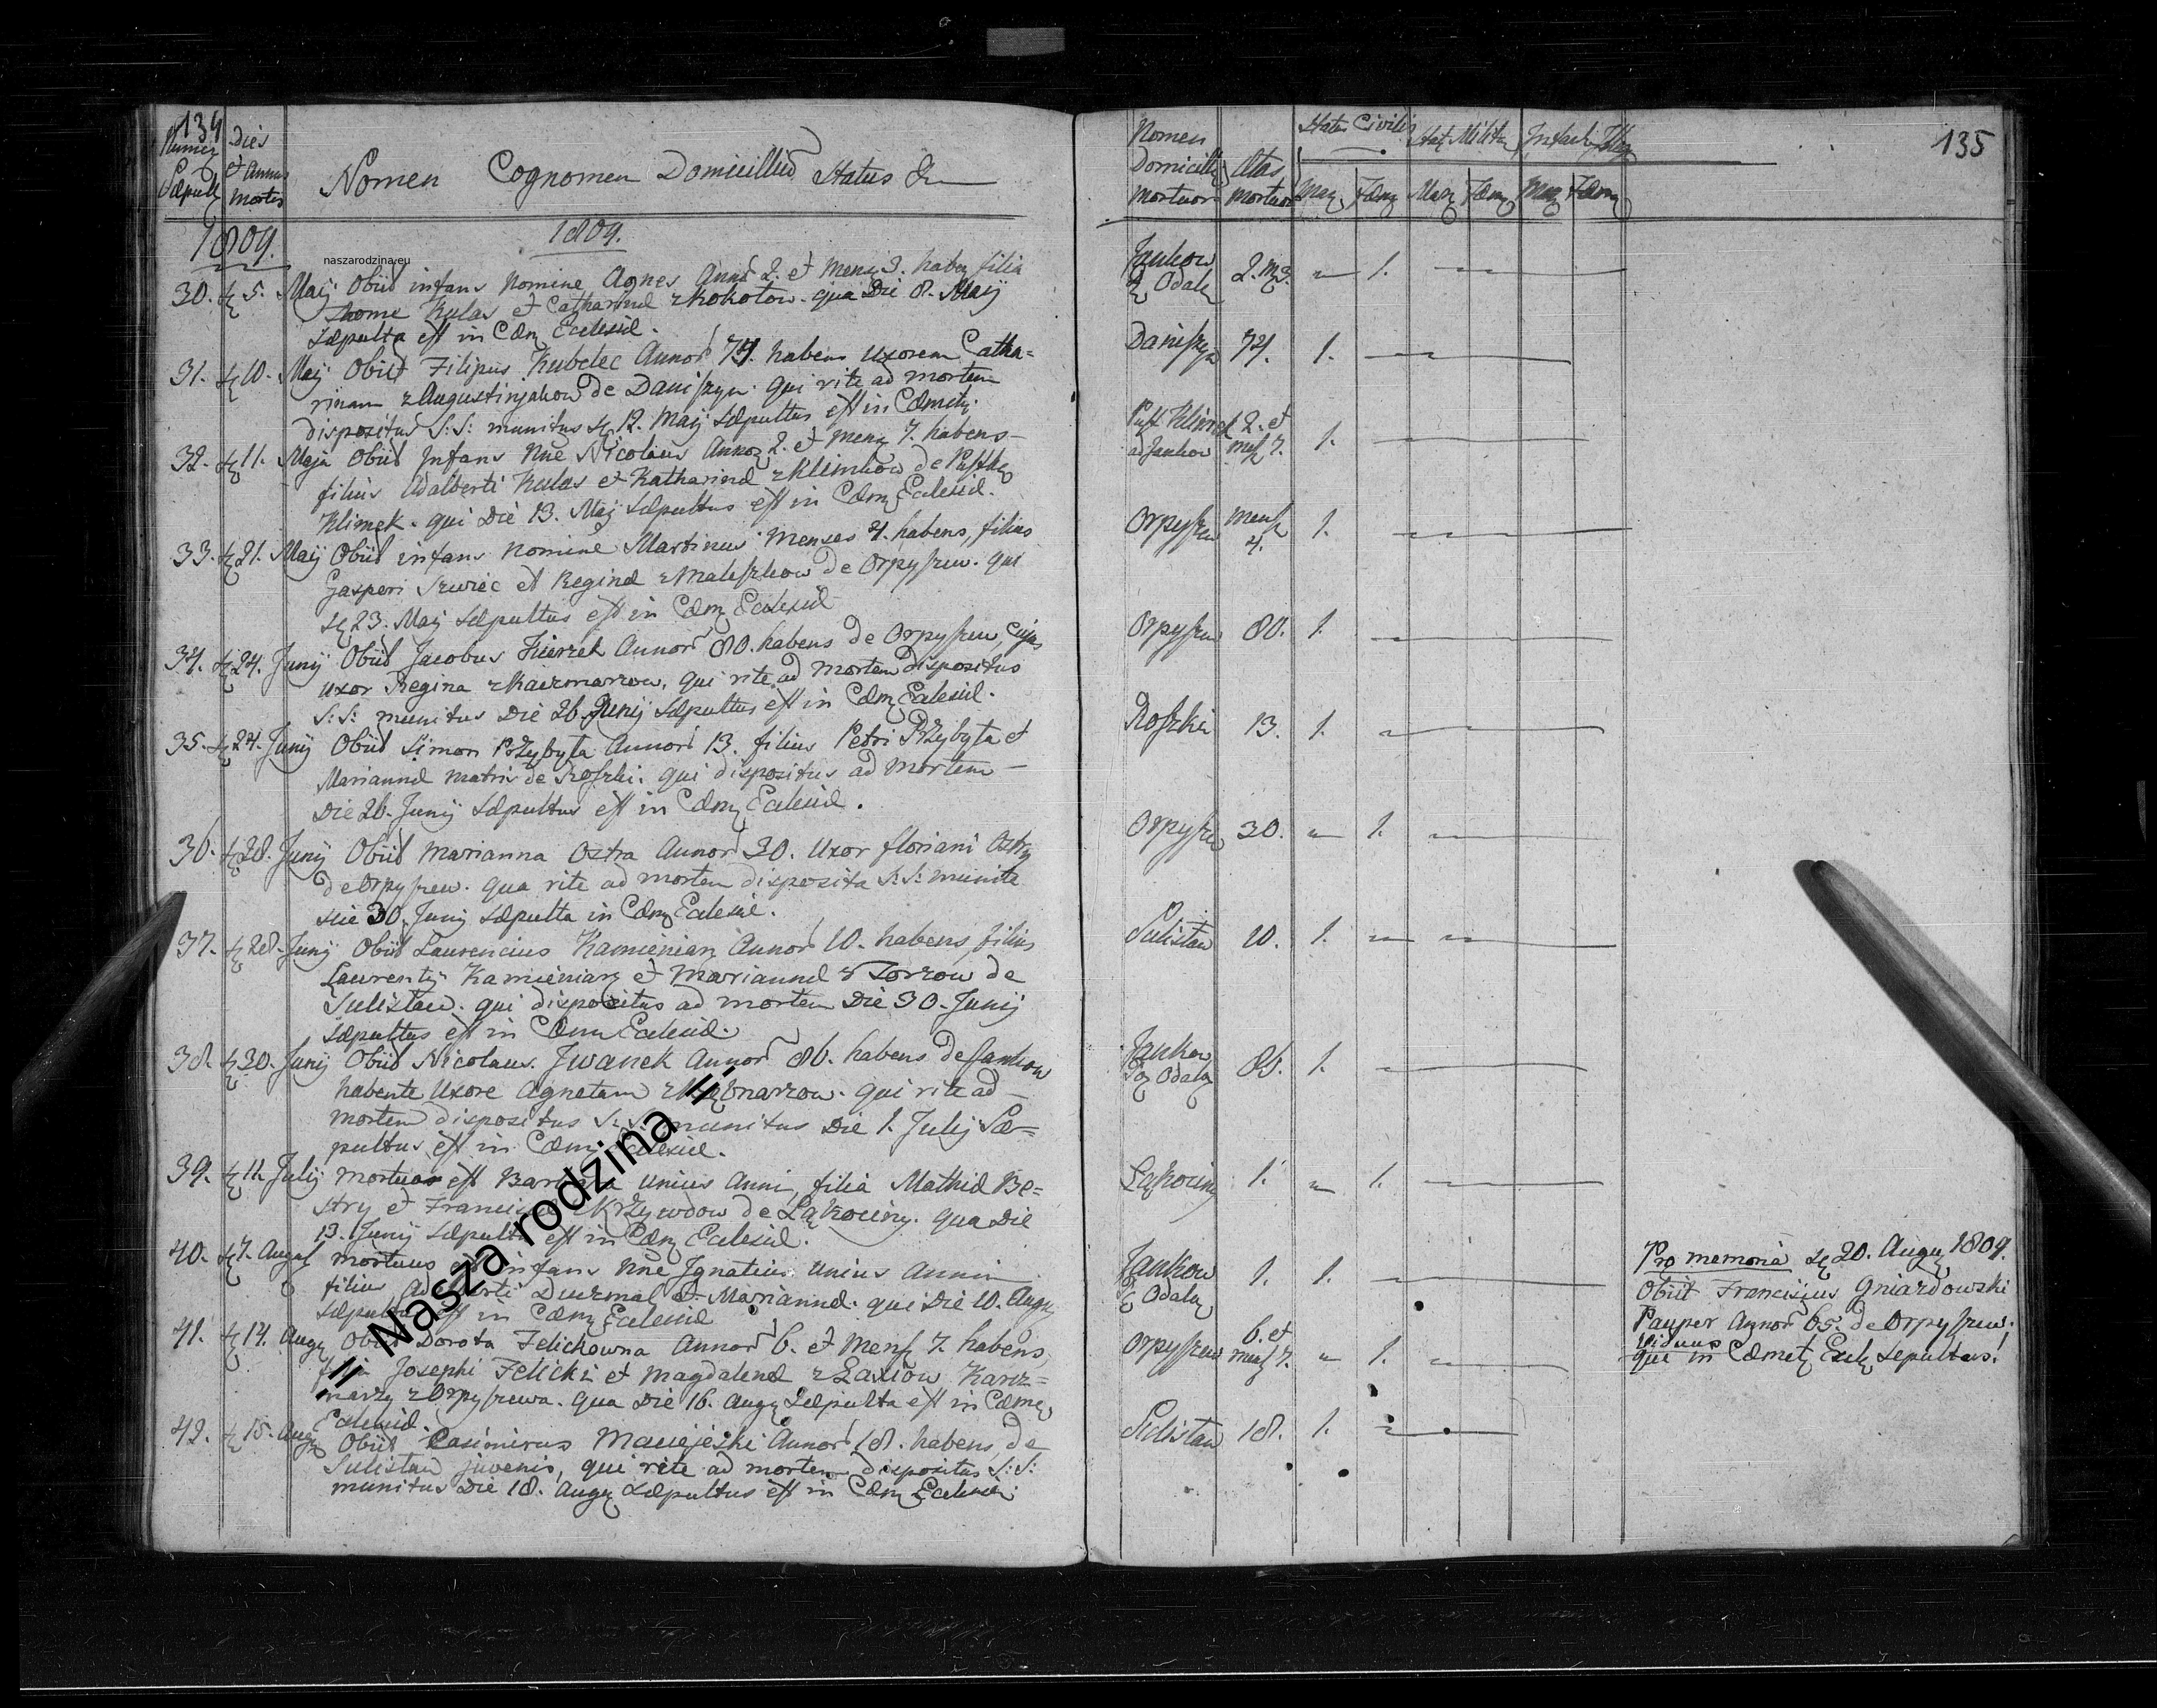 134
Numer Sepult
Dies et Annus Mortis
Nomen Cognomen Domicilliũ Status &
1809.
1809.
naszarodzina.eu
30. 5. Maij Obiit infans Nomine Agnes Annor 2. et Mens 3. haben filia
Thome Kulas et Catharinæ z Kokotow. qua Die 8. Maij
Sæpulta est in Cæm Ecclesiæ.
31. 10. Maij Obiit Filipus Kubelec Annor 74. habens Uxorem Catha=
rinam z Augustinjakow de Daniszyn. qui rite ad mortem
dispositus S: S: munitus 12. Maij Sæpultus est in Cæmet.
32. 11. Maja Obiit Infans Nne Nicolaus Annor 2. et Mens 7. habens
filius Adalberti Kulas et Katharinæ z Klimkow de Pustk
Klimek. qui Die 13. Maj Sæpultus est in Cæm Ecclesiæ.
33. 21. Maij Obiit infans Nomine Martinus Menses 4. habens, filius
Gasperi Szwiec et Reginæ z Maleszkow de Orpyszew. qui
23. Maij Sæpultus est in Cæm Ecclesiæ
34. 24. Junij Obiit Jacobus Annor 80. habens de Orpyszew, cujus
Uxor Regina z Kaczmarzow, qui rite ad mortem dispositus
S: S: munitus Die 26. Junij Sæpultus est in Cæm Ecclesiæ.
35. 24. Junij Obiit Simon Przybyła Annor 13. filius Petri Przybyła et
Mariannæ matris de Roszki. qui dispositus ad mortem
Die 26. Junij Sæpultus est in Cæm Ecclesiæ.
36. 28. Junij Obiit Marianna Ostra Annor 30. Uxor floriani Ostry
de Orpyszew. qua rite ad mortem disposita S: S: munita
Die 30. Junij Sæpulta in Cæm Ecclesiæ.
37. 28. Junij Obiit Laurencius Kamieniarz Annor 10. habens, filius
Laurentij Kamieniarz et Mariannæ z Zorzow de
Sulislaw. qui dispositus ad mortem Die 30. Junij
Sæpultus est in Cæm Ecclesiæ.
38. 30. Junij Obiit Nicolaus Iwanek Annor 86. habens de Jankow
habente Uxore Agnetam qui rite ad
mortem dispositus S: S: munitus Die 1. Julij Sæ=
pultus est in Cæm Ecclesiæ.
39. 11. Julij Mortua est Barbara unius Anni, filia Mathiæ By=
stry et Franciscæ z Krzywdow de Łąkociny. qua Die
13. Junij Sæpulta est in Cæm Ecclesiæ.
40. 7. August Mortuus est infans Nne Ignatius unius Anni
filius Adalberti Duczmal et Mariannæ. qui Die 10. Aug
Sæpultus est in Cæm Ecclesiæ
41. 14. Aug Obiit Dorota Felickowna Annor 6. et Mens 7. habens,
filia Josephi Felicki et Magdalenæ Karcz=
marzy z Orpyszewa. qua Die 16. Aug Sæpulta est in Cæme
Ecclesiæ.
42. 15. Aug Obiit Casimirus Maciejeski Annor 18. habens, de
Sulislaw juvenis, qui rite ad mortem dispositus S: S:
munitus Die 18. Aug Sæpultus est in Cæm Ecclesiæ.
|| Nasza rodzina ||
135
Nomen Domicilli Mortuor
Ætas Mortuor
Status Civilis
Stat Militar
Mas Fæm Mas Fæm Mas Fæm
Jankow Odal 2. M 3. 1.
Daniszyn 74. 1.
Pust Klimek ad Jankow 2. et mens 7. 1.
Orpyszew Mens 4. 1.
Orpyszew 80. 1.
Roszki 13. 1.
Orpyszew 30. 1.
Sulislaw 10. 1.
Jankow Odal 86. 1.
Łąkociny 1. 1.
Jankow Odal 1. 1.
Orpyszew 6. et mens 7. 1.
Sulislaw 18. 1.
Pro memoria 20. Aug 1809.
Obiit Franciszus Gniazdowski
Pauper Annor 65. de Orpyszew.
viduus
qui in Cæmet Eccl Sepultus!